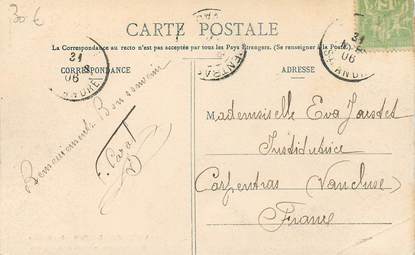 30 €
CARTE POSTALE
La Correspondance au recto n'est pas acceptée par tous les Pays Étrangers. (Se renseigner à la Poste)
CORRESPONDANCE
ADRESSE
31
06
ANDRÉ
ENTRAS
31
06
ST ANDRÉ
Mademoiselle Eva
Institutrice
Carpentras (Vaucluse)
France